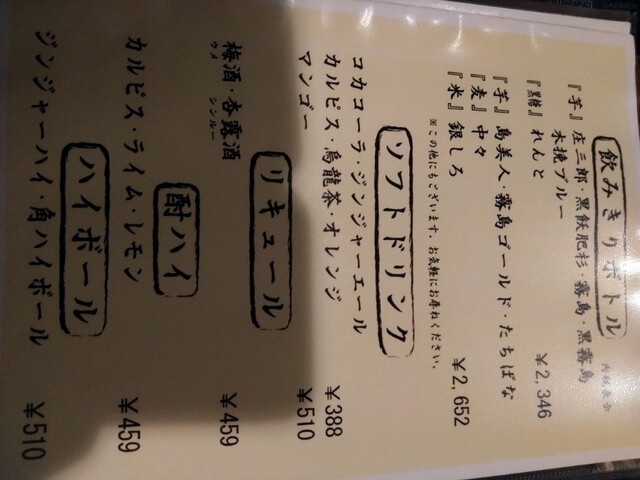 飲みきりボトル
内税表示
『芋』 庄三郎・黒飫肥杉・霧島・黒霧島
木挽ブルー
『黒糖』 れんと
¥2,346
『芋』 島美人・霧島ゴールド・たちばな
『麦』 中々
『米』 銀しろ
¥2,652
※この他にもございます。お気軽にお尋ねください。
ソフトドリンク
コカコーラ・ジンジャーエール
カルピス・烏龍茶・オレンジ
¥388
マンゴー
¥510
リキュール
梅酒・杏露酒
ウメ シンルー
¥459
酎ハイ
カルピス・ライム・レモン
¥459
ハイボール
ジンジャーハイ・角ハイボール
¥510